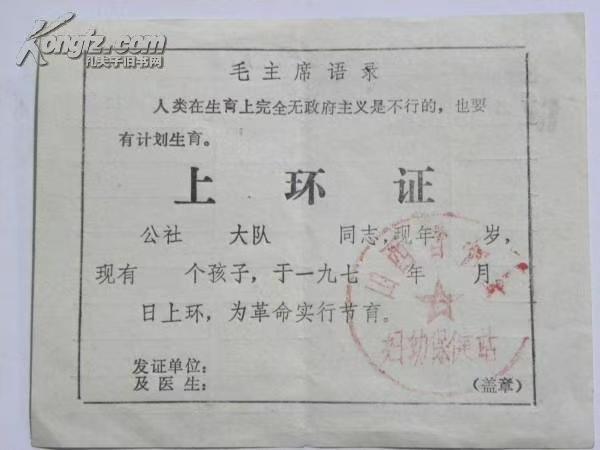 Kongfz.com
孔夫子旧书网
毛主席语录
人类在生育上完全无政府主义是不行的，也要
有计划生育。
上环证
公社 大队 同志，现年 岁，
现有 个孩子，于一九七 年 月
日上环，为革命实行节育。
山西省
妇幼保健站
发证单位：
及医生：
（盖章）